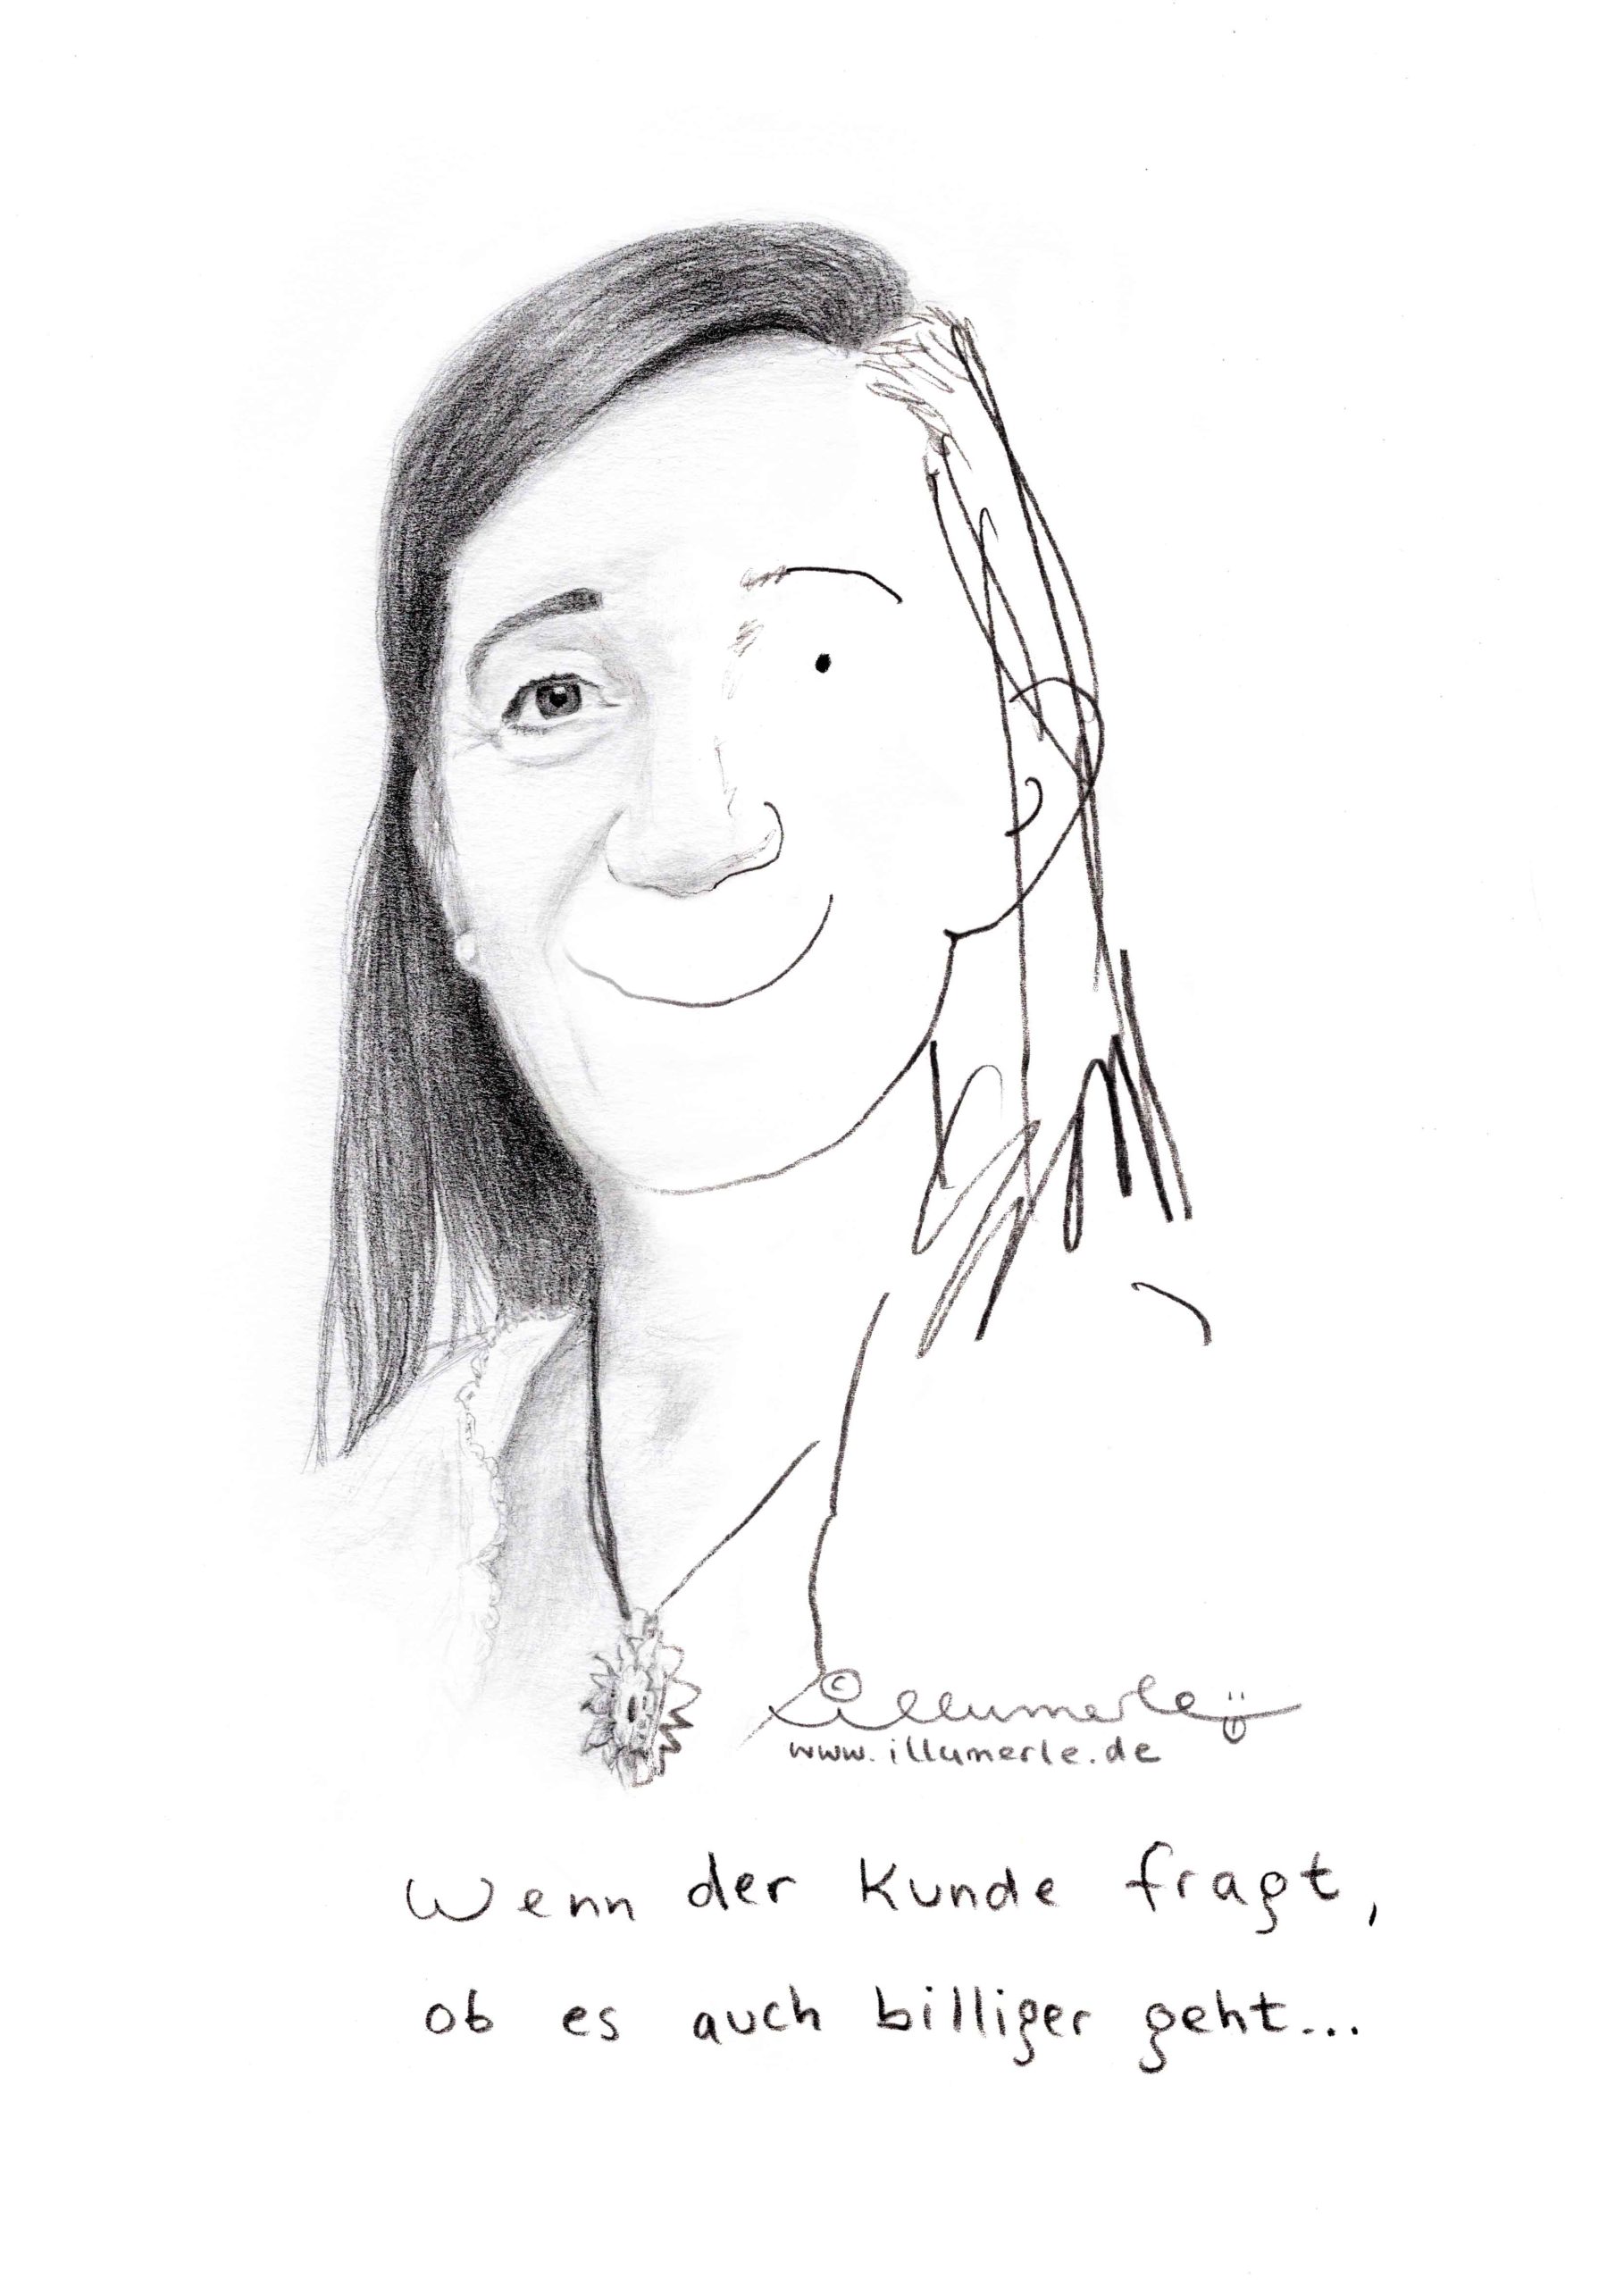 © illumerle
www.illumerle.de
Wenn der Kunde fragt,
ob es auch billiger geht...